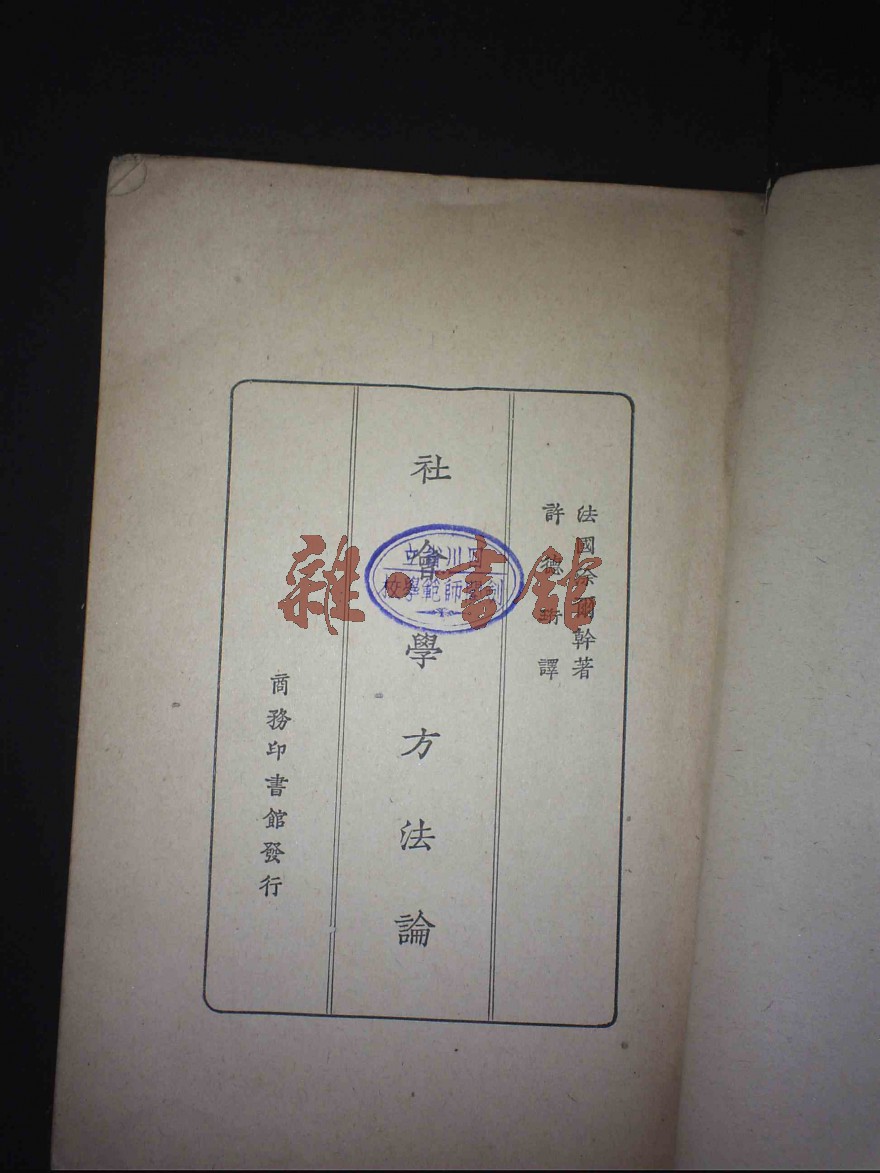 法國涂爾幹著
許德珩譯
社會學方法論
商務印書館發行
雜·書館
四川省立
劍閣師範學校